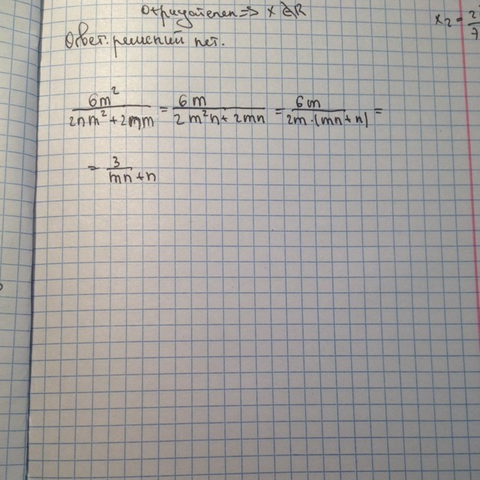 отрицателен => x ∉ R
x₂ = 2/7
Ответ: решений нет.
6m²/(2nm² + 2mn) = 6m/(2m²n + 2mn) = 6m/(2m·(mn+n)) =
= 3/(mn+n)